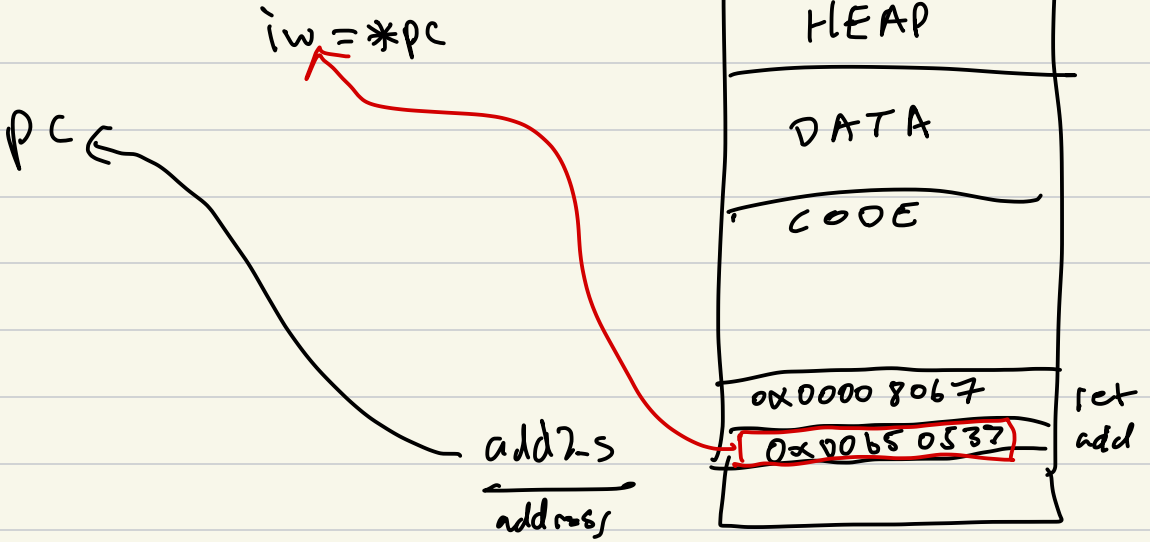 iw = *pc
HEAP
pc
DATA
CODE
0x0000 8067 ret
0x00b5 0533 add
add2_s
address